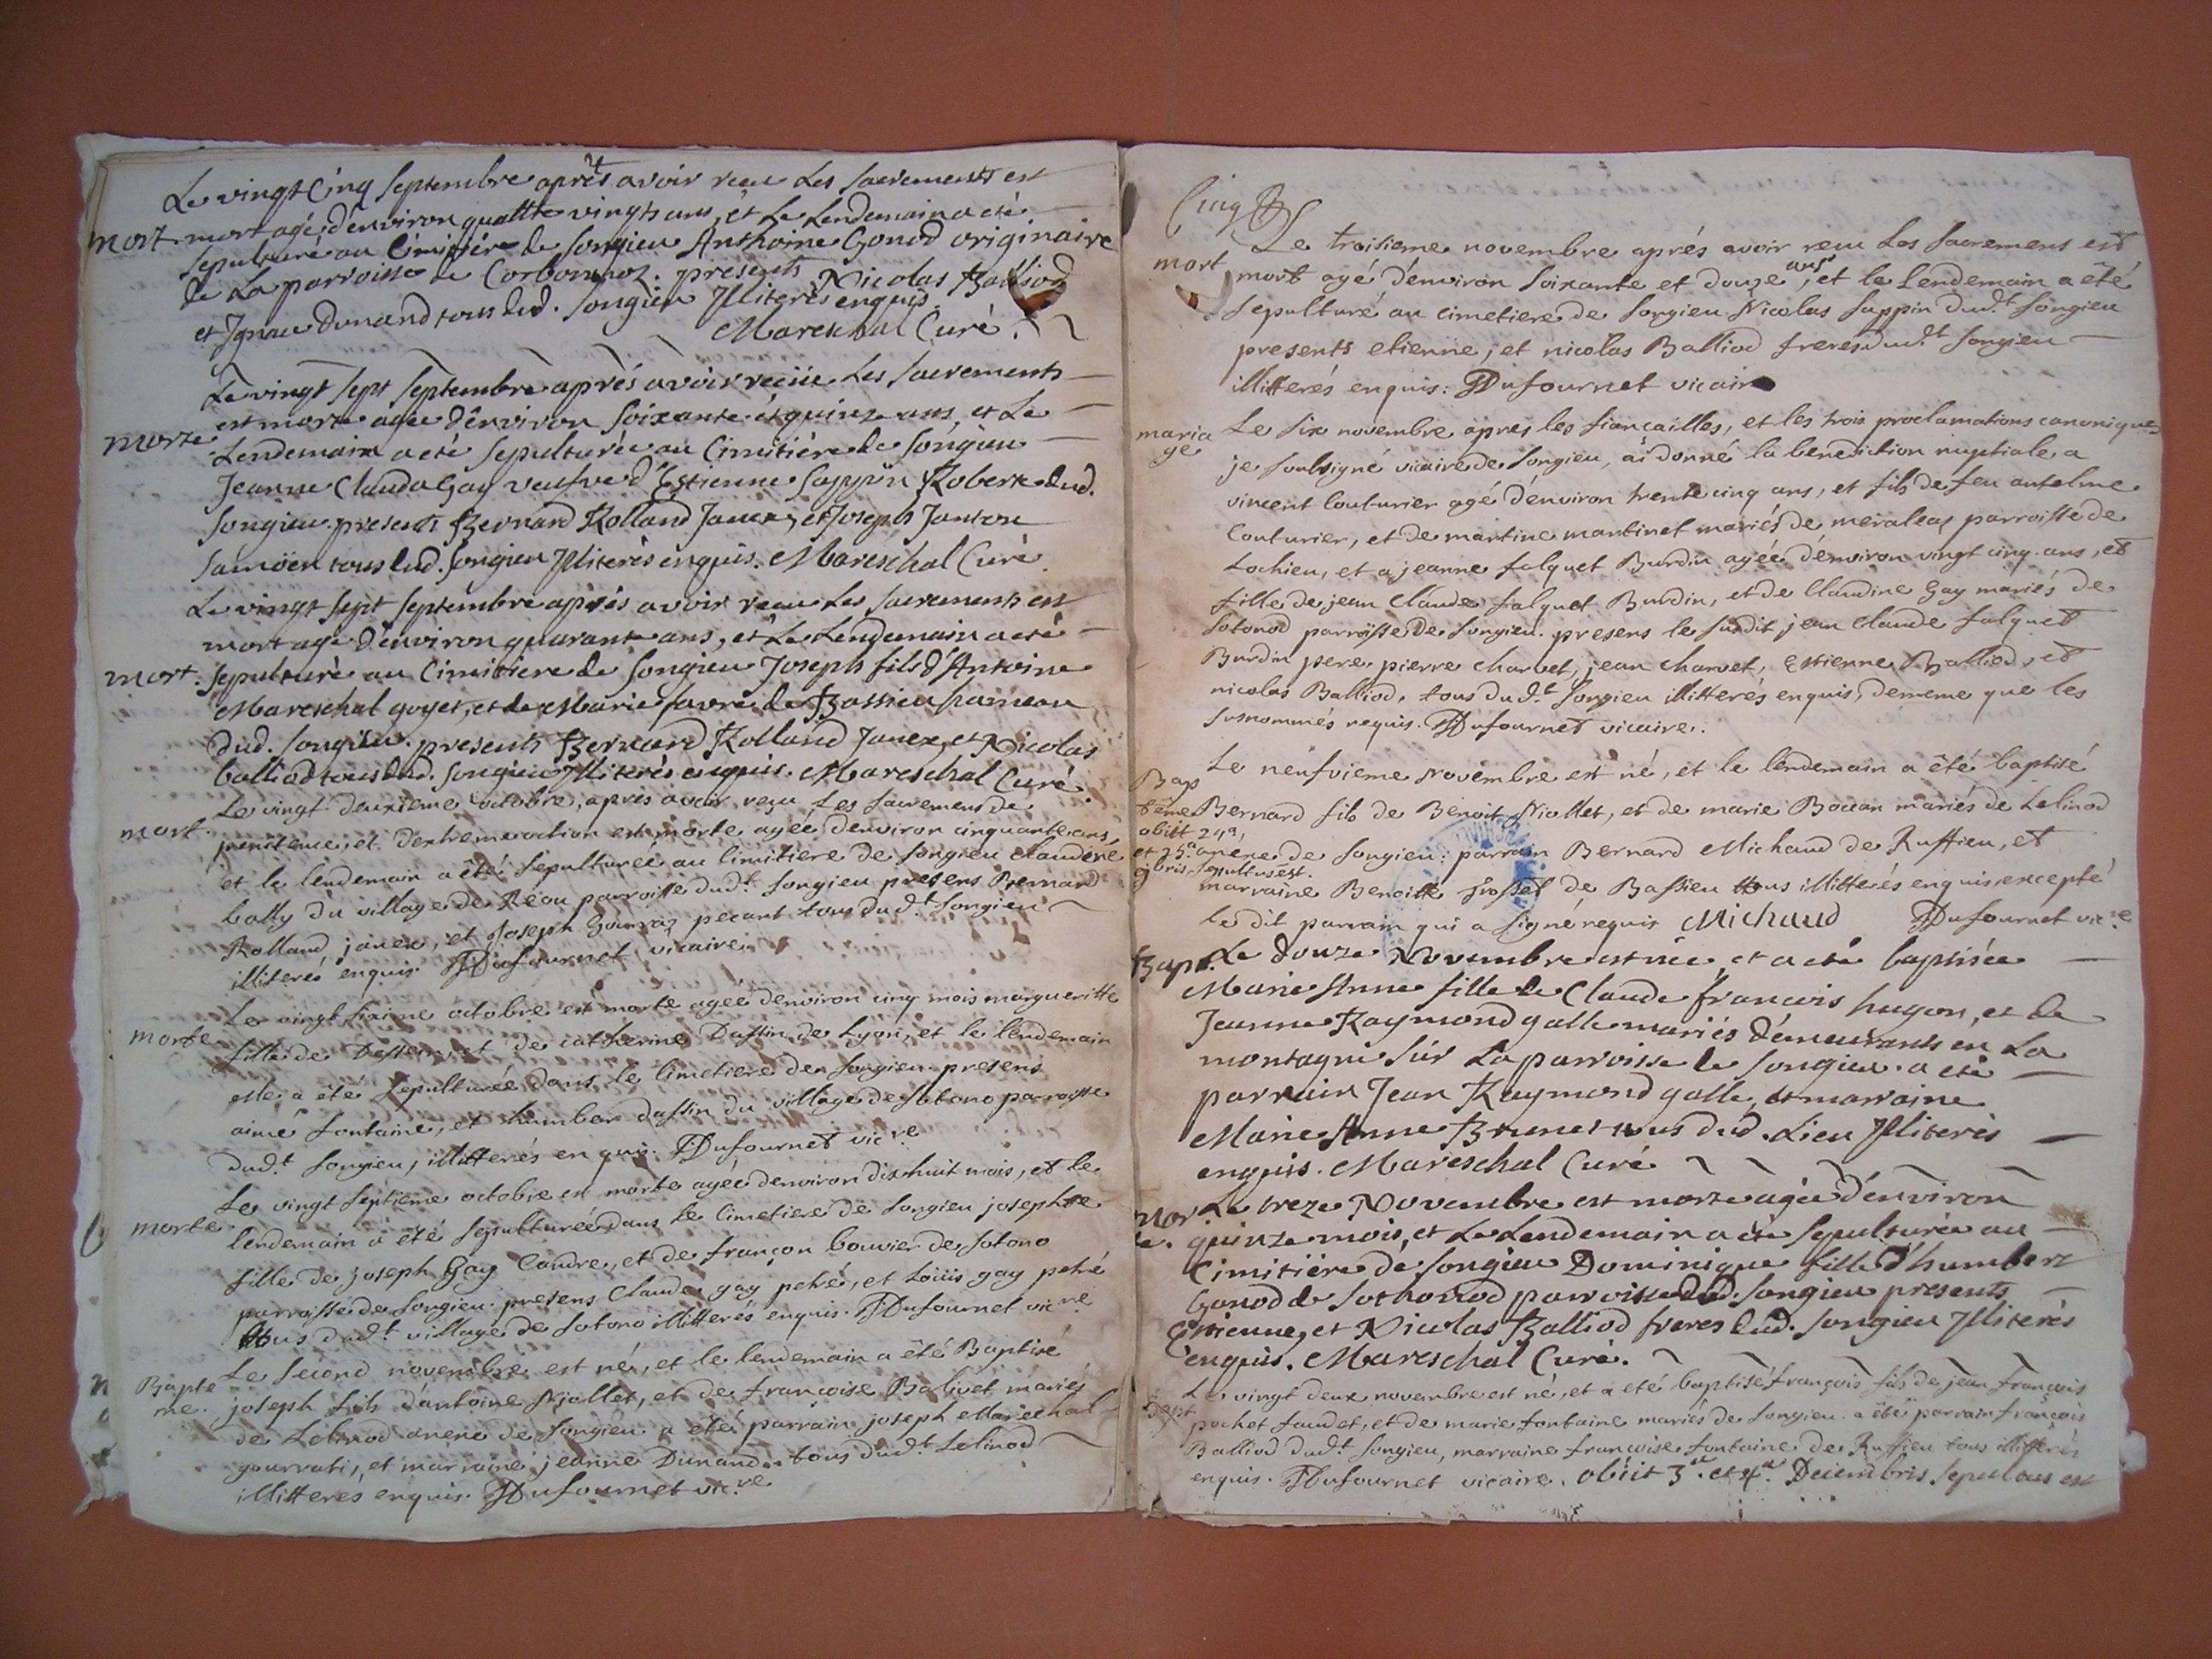 Le vingt Cinq Septembre après avoir receu Les sacrements est
mort. mort agé d'environ quattre vingts ans, et Le Lendemain a eté
sepulturé au Cimitière de Songieu Anthoine Gonod originaire
de La parroisse de Corbonnoz. presents Nicolas Balliod
et Ignace Dunand tous dud. Songieu Illiterès enquis.
Mareschal Curé.
Le vingt sept Septembre après avoir receüe Les sacrements
est morte agée d'environ soixante et quinze ans, et Le
morte Lendemain a eté sepulturée au Cimitière de Songieu
Jeanne Clauda Gay veufve d'Estienne Sappin Robert dud.
Songieu. presents Bernard Rolland Janex, et Joseph Janton
Samöen tous dud. Songieu Illiterès enquis. Mareschal Curé.
Le vingt sept septembre après avoir receu Les sacrements est
mort agé d'environ quarante ans, et Le Lendemain a eté
mort. sepulturé au Cimitiere de Songieu Joseph fils d'Antoine
Mareschal goyet, et de Marie favre de Bassieu hameau
dud. Songieu. presents Bernard Rolland Janex, et Nicolas
balliod tous dud. Songieu Illiterès enquis. Mareschal Curé.
Le vingt deuxieme octobre, après avoir reçu Les sacremens de
mort. penitence, et d'extremeonction est morte agée d'environ cinquante ans,
et le lendemain a été sepulturée au Cimitiere de Songieu claudine
bolly du village de Reou parroisse dud.t Songieu presens Bernard
Rolland janex, et Joseph Gourraz pecant tous dud.t Songieu
illiterés enquis. Dufournet vicaire
Le vingt sixime octobre est morte agée d'environ cinq mois margueritte
morte. fille de Dessem, et de catherine Dassin de Lyon, et le lendemain
elle a été sepulturée dans le Cimetiere de Songieu presens
aimé fontaine, et humber dassin du village de Sotono parroisse
dud.t Songieu, illitterés enquis. Dufournet vic.re
Le vingt septieme octobre est morte agée d'environ dix huit mois, et le
morte. lendemain a été sepulturée dans le Cimetiere de Songieu josephte
fille de joseph Gay Candre, et de françon bouvier de sotono
parroisse de Songieu. presens Claude gay petré, et Loüis gay petré
tous dud.t village de sotono illitterés enquis. Dufournet vic.re
Le second novembre est né, et le lendemain a été Baptisé
Bapte
me. joseph fils d'antoine Niollet, et de françoise Balivet mariés
de Lelinod anexe de Songieu. a été parrain joseph Marechal
gourrati, et marraine jeanne Dunand. tous dud.t Lelinod
illitteres enquis. Dufournet vic.re
Cinq
Le troisieme novembre aprés avoir reçu Les sacremens est
mort mort agé d'environ soixante et douze ans, et le lendemain a été
sepulturé au cimetiere de Songieu Nicolas sappin dud.t Songieu
presents etienne, et nicolas Balliod freres dud.t Songieu
illitterés enquis: Dufournet vicaire
maria
ge Le six novembre apres les fiancailles, et les trois proclamations canoniques
je soubsigné vicaire de Songieu, ai donné la benediction nuptiale a
vincent Couturier agé d'environ trente cinq ans, et fils de feu antelme
Couturier, et de martine martinet mariés de meraleaz parroisse de
Lochieu, et a jeanne falquet Burdin agée d'environ vingt cinq ans, et
fille de jean Claude falquet Burdin, et de Claudine Gay mariés de
Sotonod parroisse de Songieu. presens le susdit jean claude falquet
Burdin pere, pierre charvet, jean charvet, Estienne Balliod, et
nicolas Balliod, tous dud.t Songieu illitterés enquis, dememe que les
susnommés requis. Dufournet vicaire.
Le neufvieme Novembre est né, et le lendemain a été baptisé
Bap
teme Bernard fils de Benoit Niollet, et de marie Bouan mariés de Lelinod
obiit 24a,
et 25a anexe de Songieu: parrain Bernard Michaud de Ruffieu, et
9bris. sepultus est.
marraine Benoitte de Bassieu tous illitterés enquis, excepté
le dit parrain qui a signé requis Michaud Dufournet vic.re
Bapt. Le douze Novembre est née, et a eté baptisée
Marie Anne fille de Claude françois hugon, et de
Jeanne Raymond galle mariés demeurants en La
montagne sur La parroisse de Songieu. a eté
parrain Jean Raymond galle, et marraine
Marie Anne Brunet tous dud. Lieu Illiterès
enquis. Mareschal Curé
Le treze Novembre est morte agée d'environ
mor
te. quinze mois, et Le Lendemain a eté sepulturée au
Cimitière de Songieu Dominique fille d'humbert
Gonod de Sothonod parroisse dud. Songieu presents
Estienne, et Nicolas Balliod freres dud. Songieu Illiterès
enquis. Mareschal Curé.
Le vingt deux novembre est né, et a eté baptisé françois fils de jean françois
Bapt. pochet faudet, et de marie fontaine mariés de Songieu. a été parrain françois
Balliod dud.t Songieu, marraine françoise fontaine de Ruffieu tous illitterés
enquis. Dufournet vicaire. obiit 3a. et 4a. Decembris sepultus est